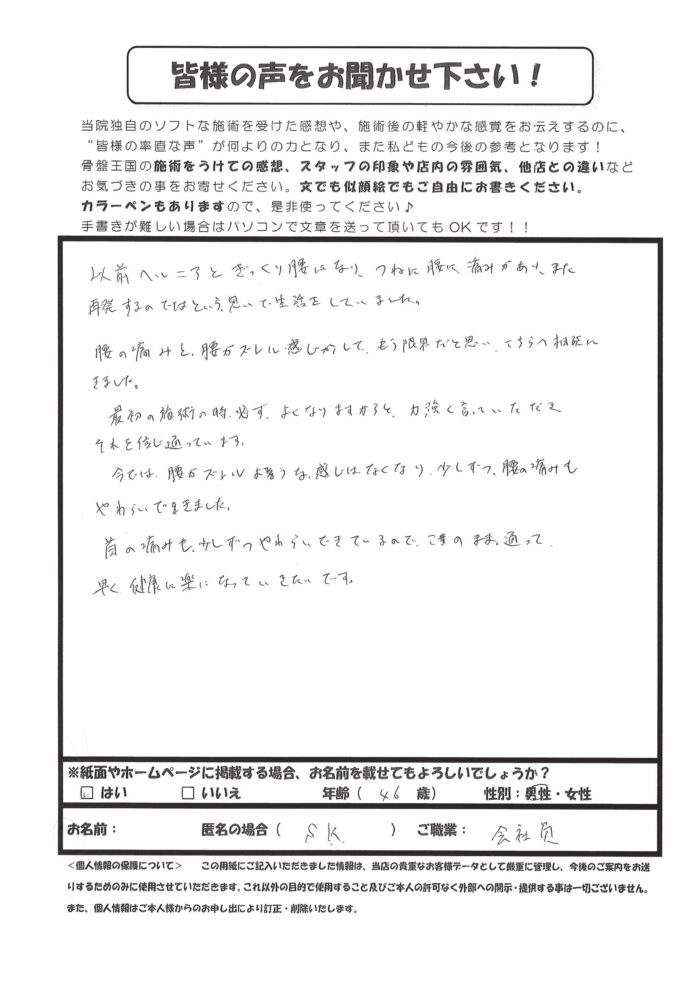 皆様の声をお聞かせ下さい！
当院独自のソフトな施術を受けた感想や、施術後の軽やかな感覚をお伝えするのに、
“皆様の率直な声”が何よりの力となり、また私どもの今後の参考となります！
骨盤王国の施術をうけての感想、スタッフの印象や店内の雰囲気、他店との違いなど
お気づきの事をお寄せください。文でも似顔絵でもご自由にお書きください。
カラーペンもありますので、是非使ってください♪
手書きが難しい場合はパソコンで文章を送って頂いてもOKです！！
以前ヘルニアとぎっくり腰になり、つねに腰に、痛みがあり、また
再発するのではという、思いで生活をしていました。
腰の痛みと、腰がズレル感じがして、もう限界だと思い、こちらへ相談に
きました。
最初の施術の時、必ず、よくなりますからと、力強く言っていただき
それを信じ通っています。
今では、腰がズレルような、感じはなくなり、少しずつ、腰の痛みも
やわらいできました。
首の痛みも、少しずつやわらいできているので、このまま、通って、
早く、健康に楽になっていきたいです。
※紙面やホームページに掲載する場合、お名前を載せてもよろしいでしょうか？
☑ はい □ いいえ 年齢（ 46 歳） 性別：男性・女性
お名前： 匿名の場合（ S.K. ） ご職業： 会社員
＜個人情報の保護について＞ この用紙にご記入いただきました情報は、当店の貴重なお客様データとして厳重に管理し、今後のご案内をお送
りするためのみに使用させていただきます。これ以外の目的で使用すること及びご本人の許可なく外部への開示・提供する事は一切ございません。
また、個人情報はご本人様からのお申し出により訂正・削除いたします。